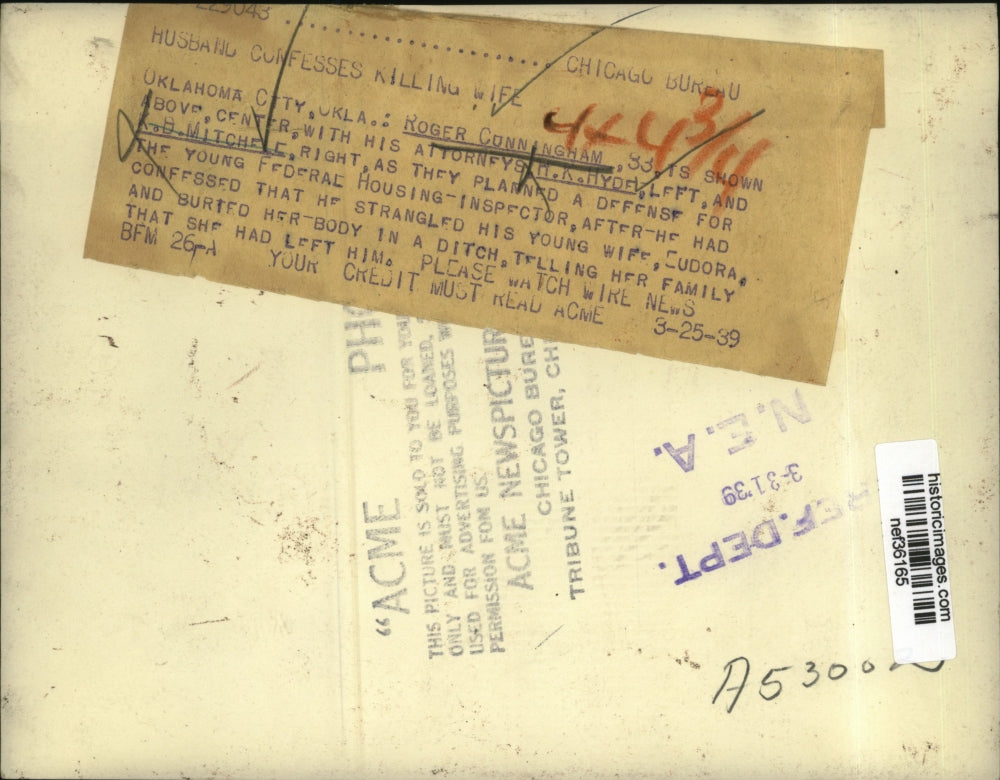 229043 .............................. CHICAGO BUREAU
HUSBAND CONFESSES KILLING WIFE
OKLAHOMA CITY, OKLA.: ROGER CUNNINGHAM, 33, IS SHOWN
ABOVE, CENTER, WITH HIS ATTORNEYS, H.K.HYDE, LEFT, AND
K.B.MITCHELL, RIGHT, AS THEY PLANNED A DEFENSE FOR
THE YOUNG FEDERAL HOUSING-INSPECTOR, AFTER-HE HAD
CONFESSED THAT HE STRANGLED HIS YOUNG WIFE, EUDORA,
AND BURIED HER-BODY IN A DITCH, TELLING HER FAMILY
THAT SHE HAD LEFT HIM. PLEASE WATCH WIRE NEWS
BFM 26-A YOUR CREDIT MUST READ ACME 3-25-39
4x4 3/4
"ACME PHO
THIS PICTURE IS SOLD TO YOU FOR YOU
ONLY AND MUST NOT BE LOANED,
USED FOR ADVERTISING PURPOSES W
PERMISSION FOM US.
ACME NEWSPICTUR
CHICAGO BURE
TRIBUNE TOWER, CH
N.E.A.
3-31'39
REF.DEPT.
historicimages.com
nef36165
A5300